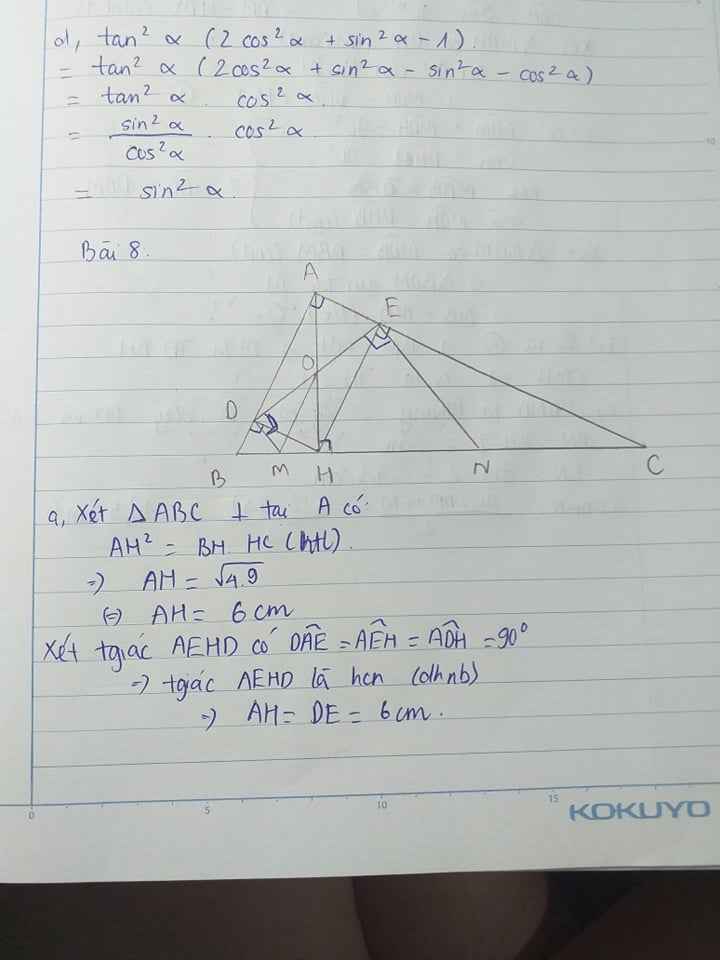 d, tan² α (2 cos² α + sin² α - 1).
= tan² α (2cos²α + sin²α - sin²α - cos²α)
= tan² α . cos² α.
= sin² α / cos² α . cos² α.
= sin² α.
Bài 8.
A
E
O
D
B M H N C
a, Xét Δ ABC ⊥ tại A có:
AH² = BH. HC (htl).
=> AH = √4.9
(=) AH = 6 cm
Xét tgiác AEHD có DÂE = AÊH = AD̂H = 90°
=> tgiác AEHD là hcn (dhnb)
=> AH = DE = 6 cm.
0 5 10 15 KOKUYO
10